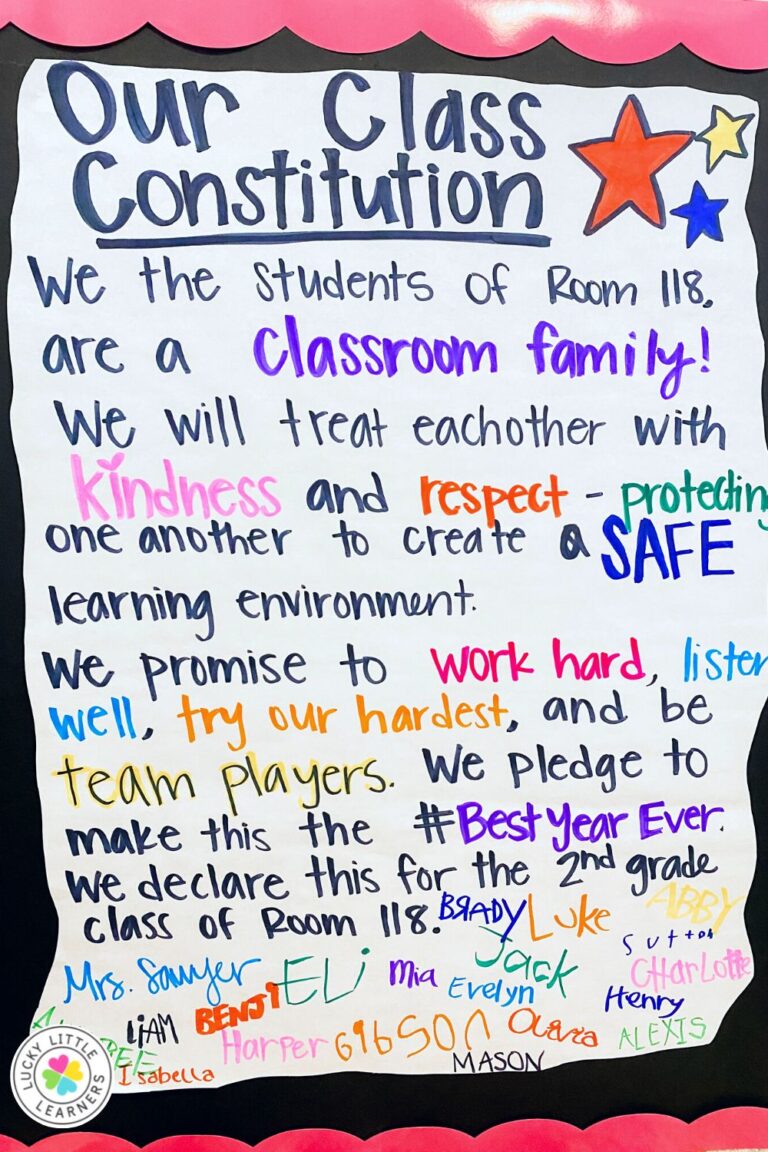 Our Class
Constitution
We the students of Room 118,
are a classroom family!
We will treat eachother with
kindness and respect - protecting
one another to create a SAFE
learning environment.
We promise to work hard, listen
well, try our hardest, and be
team players. We pledge to
make this the #Best Year Ever.
We declare this for the 2nd grade
class of Room 118. BRADY Luke ABBY
Sutton
Mrs. Sawyer ELi Mia Jack CHarLotte
Evelyn Henry
LiAM BENJI Harper Gibson Olivia ALEXIS
Isabella MASON
LUCKY LITTLE LEARNERS